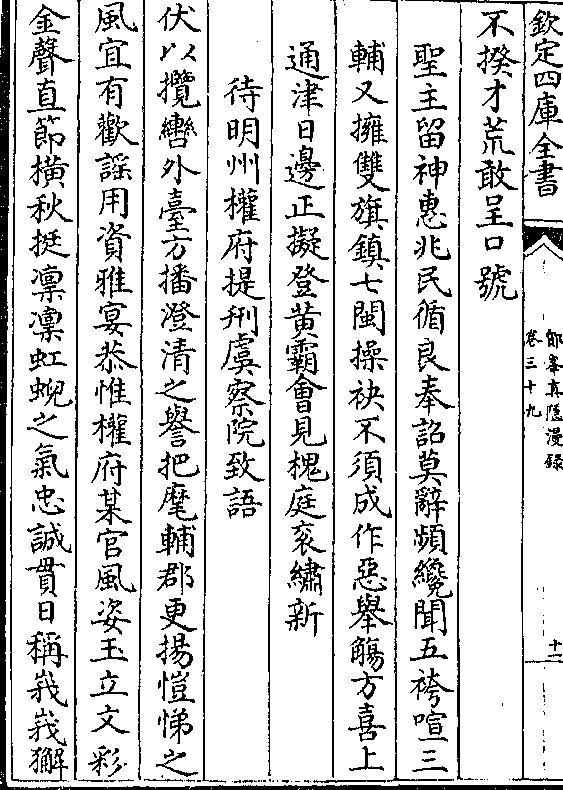 欽定四庫全書
鄮峯真隱漫録
卷三十九
十二
不揆才荒敢呈口號
聖主留神惠兆民循良奉詔莫辭頻纔聞五袴喧三
輔又擁雙旗鎮七閩操袂不須成作惡舉觴方喜上
通津日邊正擬登黄霸會見槐庭衮繡新
待明州權府提刑虞察院致語
伏以攬轡外臺方播澄清之譽把麾輔郡更揚愷悌之
風宜有歡謡用資雅宴恭惟權府某官風姿玉立文彩
金聲直節横秋挺凛凛虹蜺之氣忠誠貫日稱峩峩獬